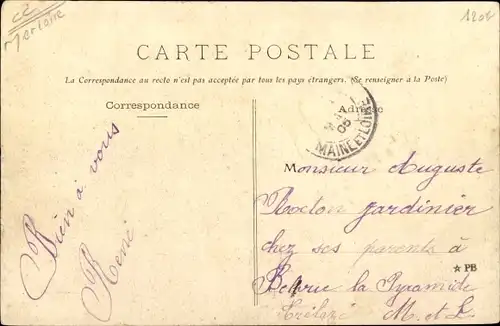 1201
CARTE POSTALE
La Correspondance au recto n'est pas acceptée par tous les pays étrangers. (Se renseigner à la Poste)
Correspondance
Adresse
05
MAINE ET LOIRE
Bien à vous
René
Monsieur Auguste
jardinier
chez ses parents à
la Pyramide
Trélazé M. et L
☆ PB